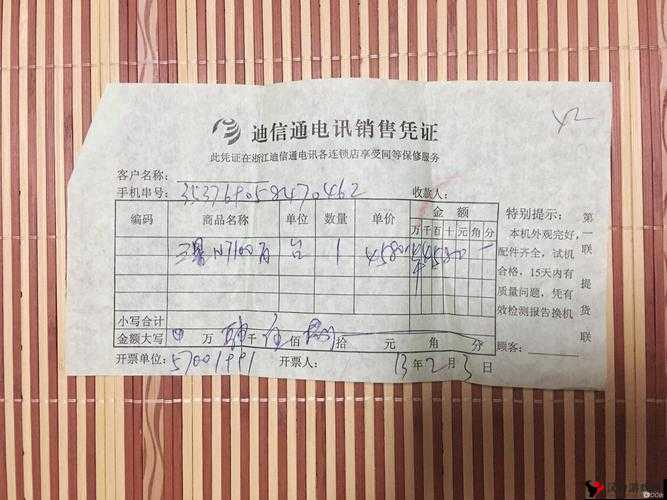 迪信通电讯销售凭证
此凭证在浙江迪信通电讯各连锁店享受同等保修服务
客户名称:
手机串号: 353769058470462 收款人:
编码 商品名称 单位 数量 单价 金额
万 千 百 十 元 角 分
三星N7100 台 1 4580
小写合计
金额大写 万 肆 千 伍 佰 捌 拾 元 角 分
开票单位: 57001991 开票人: 13年2月3日
特别提示:
本机外观完好,
配件齐全,试机
合格,15天内有
质量问题,凭有
效检测报告换机
顾客:
第一联提货联